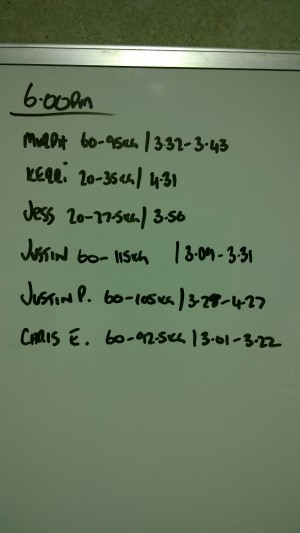 6.00pm
MURPH 60-95kg | 3.32-3.43
KERRi 20-35kg | 4.31
JESS 20-27.5kg | 3.50
JUSTIN 60-115kg | 3.09-3.31
JUSTIN P. 60-105kg | 3.28-4.27
CHRIS E. 60-92.5kg | 3.01-3.22